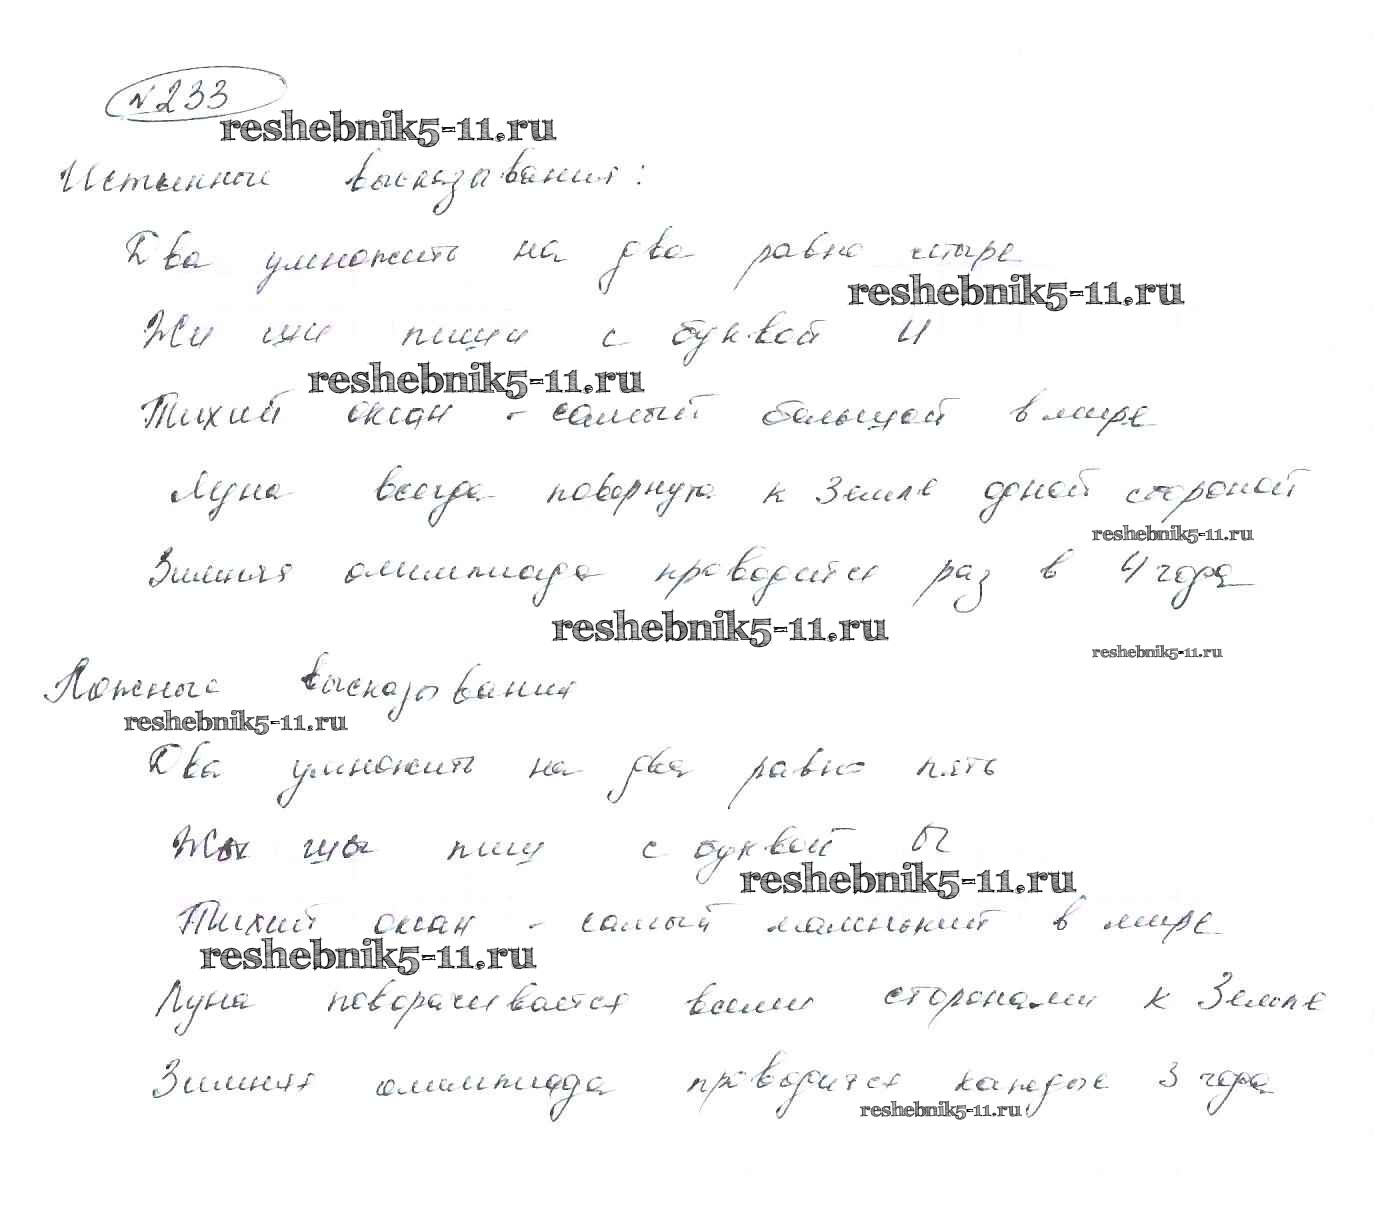 №233
reshebnik5-11.ru
Истинные высказывания:
Два умножить на два равно чтыре
reshebnik5-11.ru
Жи ши пиши с буквой И
reshebnik5-11.ru
Тихий океан - самый большой в мире
Луна всегда повернута к Земле одной стороной
reshebnik5-11.ru
Зимняя олимпиада проводится раз в 4 года
reshebnik5-11.ru
reshebnik5-11.ru
Ложные высказывания
reshebnik5-11.ru
Два умножить на два равно пять
Жы шы пиш с буквой Ы
reshebnik5-11.ru
Тихий океан - самый маленький в мире
reshebnik5-11.ru
Луна поворачивается всеми сторонами к Земле
Зимняя олимпиада проводится каждые 3 года
reshebnik5-11.ru